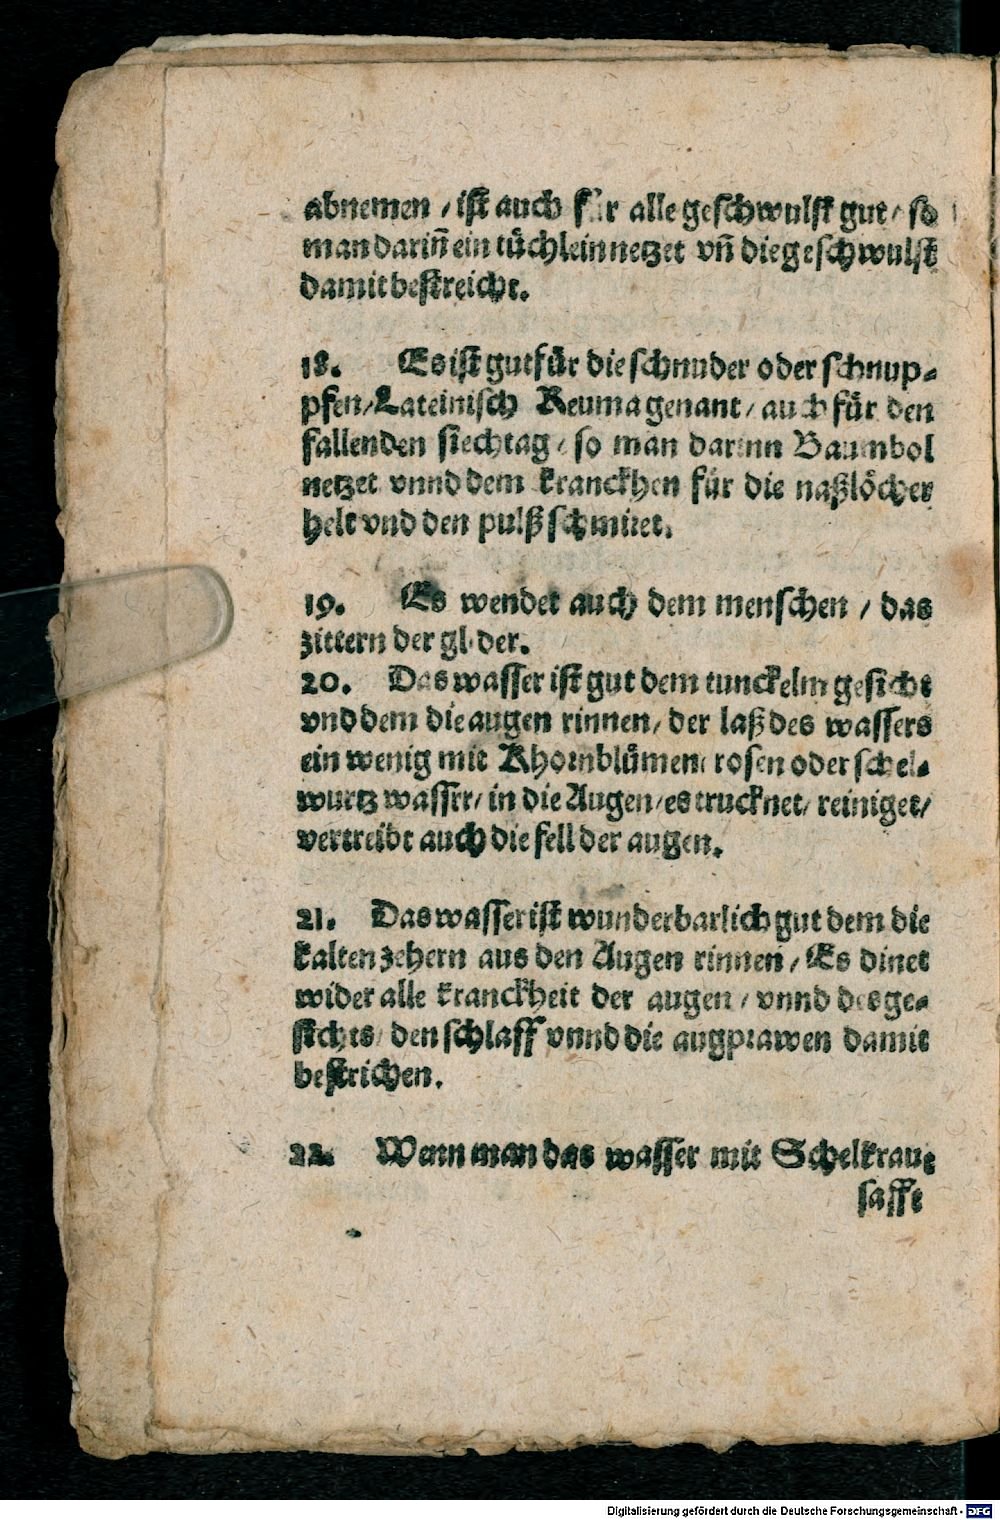 abnemen / ist auch für alle geschwulst gut / so
man dariñ ein tüchlein netzet vñ die geschwulst
damit bestreicht.
18. Es ist gut für die schnuder oder schnup-
pfen / Lateinisch Reuma genant / auch für den
fallenden siechtag / so man darinn Baumbol
netzet vnnd dem kranckhen für die naßlöcher
helt vnd den pulß schmiret.
19. Es wendet auch dem menschen / das
zittern der glider.
20. Das wasser ist gut dem tunckelm gesicht
vnd dem die augen rinnen / der laß des wassers
ein wenig mit Khornblümen rosen oder schel-
wurtz wasser / in die Augen / es trucknet / reiniget /
vertreibt auch die fell der augen.
21. Das wasser ist wunderbarlich gut dem die
kalten zehern aus den Augen rinnen / Es dinet
wider alle kranckheit der augen / vnnd des ge-
sichts / den schlaff vnnd die augprawen damit
bestrichen.
22. Wenn man das wasser mit Schelkraut
safft
Digitalisierung gefördert durch die Deutsche Forschungsgemeinschaft - DFG